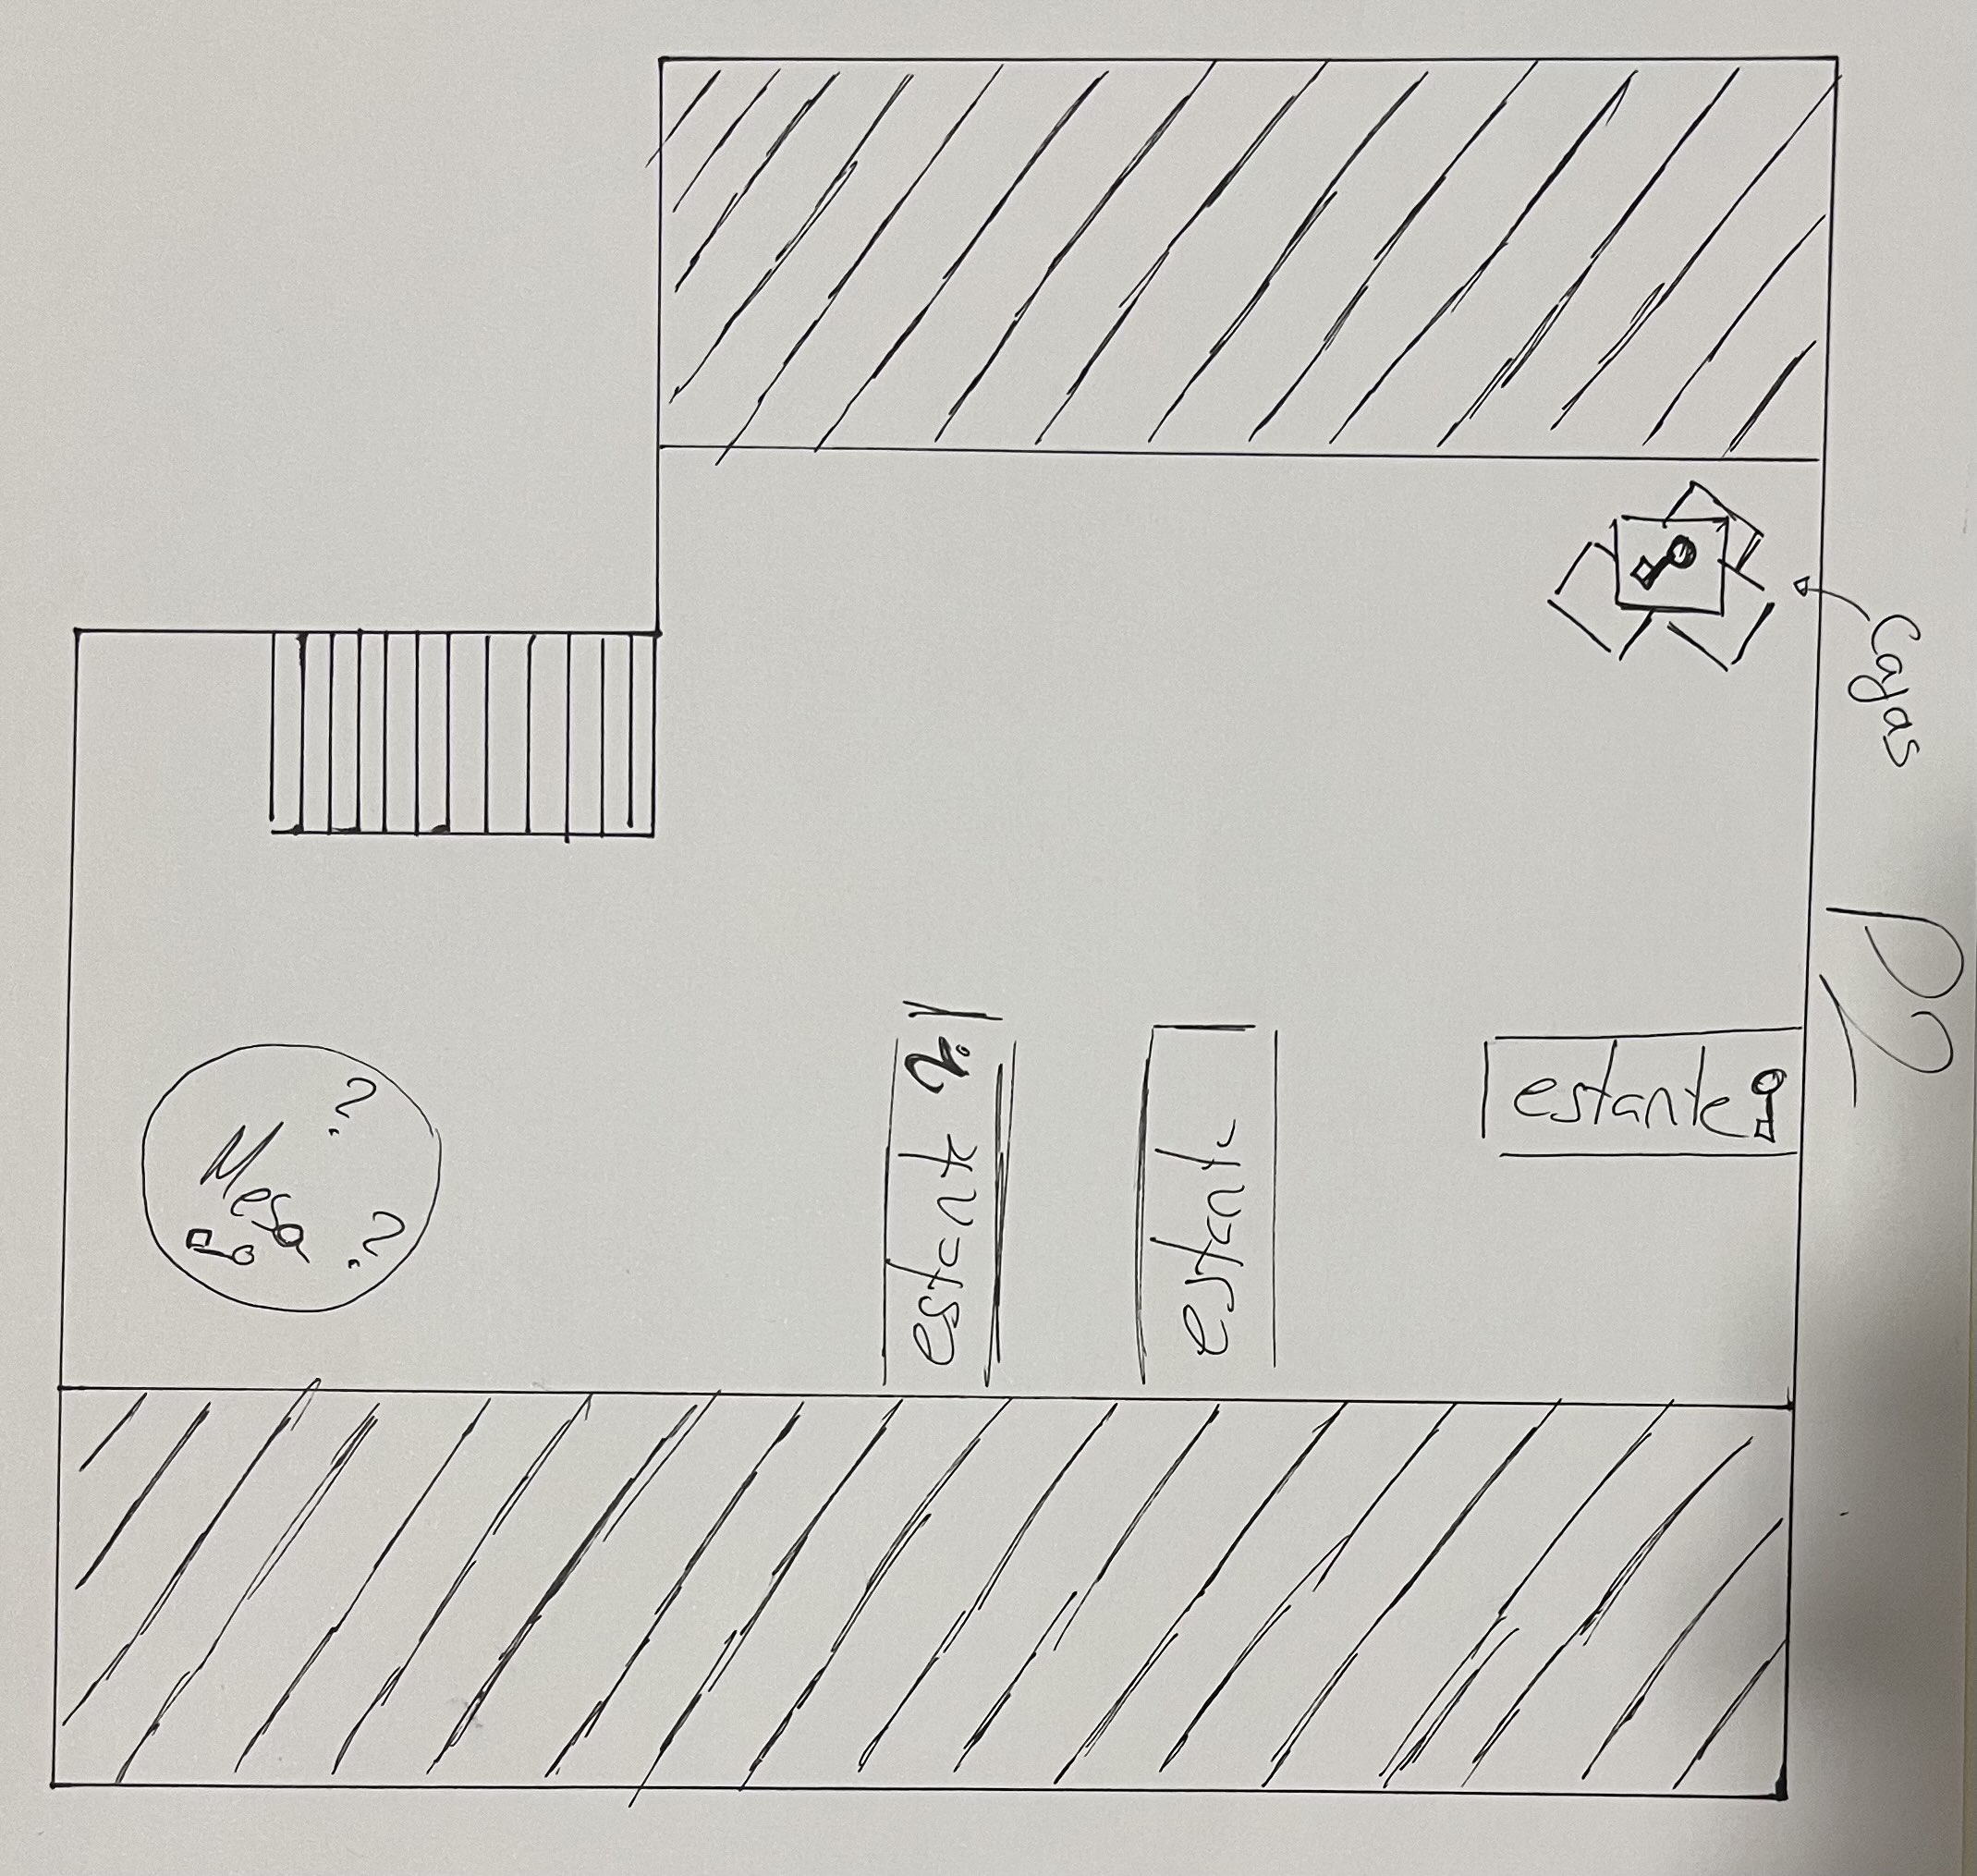 Cajas
P2
estante
estante ?
estante
Mesa
?
?